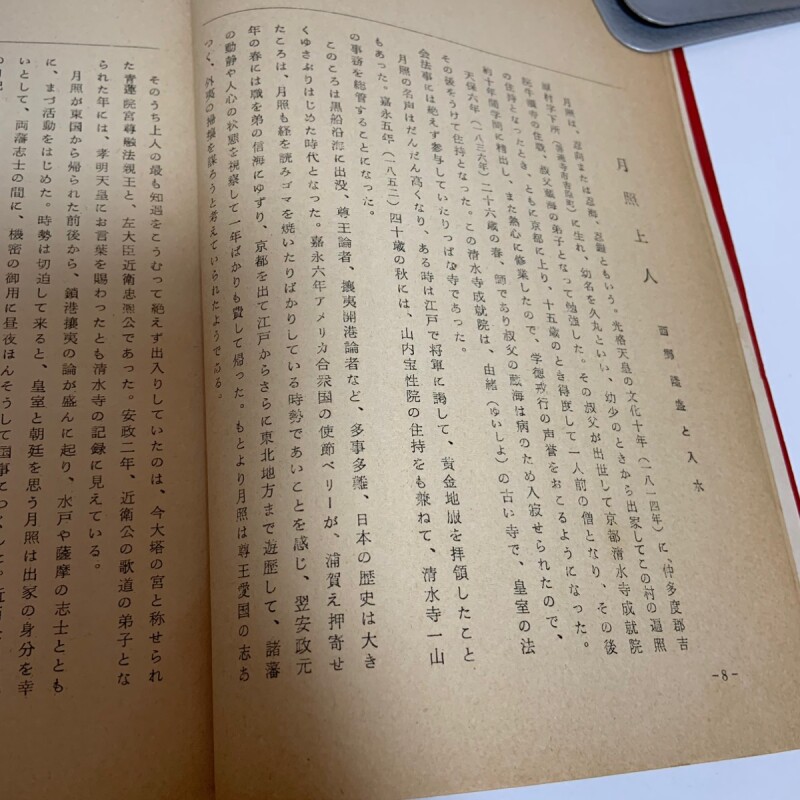 月照上人
西郷隆盛と入水
月照は、忍向または忍鎧ともいう。光格天皇の文化十年（一八一四年）に、仲多度郡吉
原村字下所（善通寺市吉原町）に生れ、幼名を久丸といい、幼少のときから出家してこの村の遍照
院牛額寺の住職、叔父蔵海の弟子となって勉強した。その叔父が出世して京都清水寺成就院
の住持となったとき、ともに京都に上り、十五歳のとき得度して一人前の僧となり、その後
約十年間学問に精出し、また熱心に修業したので、学徳戒行の声誉をおこるようになった。
天保六年（一八三六年）二十六歳の春、師であり叔父の蔵海は病のため入寂せられたので、
その後をうけて住持となった。この清水寺成就院は、由緒（ゆいしよ）の古い寺で、皇室の法
会法事には絶えず参与していたりっぱな寺であった。
月照の名声はだんだん高くなり、ある時は江戸で将軍に謁して、黄金地服を拝領したこと
もあった。嘉永五年（一八五二）四十歳の秋には、山内宝性院の住持をも兼ねて、清水寺一山
の事務を総管することになった。
このころは黒船沿海に出没、尊王論者、攘夷開港論者など、多事多難、日本の歴史は大き
くゆさぶりはじめた時代となった。嘉永六年アメリカ合衆国の使節ペリーが、浦賀え押寄せ
たころは、月照も経を読みゴマを焼いたりばかりしている時勢であいことを感じ、翌安政元
年の春には職を弟の信海にゆずり、京都を出て江戸からさらに東北地方まで遊歴して、諸藩
の動静や人心の状態を視察して一年ばかりも費して帰った。もとより月照は尊王愛国の志あ
つく、外夷の掃攘を謀ろうと考えていられたようである。
-8-
そのうち上人の最も知遇をこうむって絶えず出入りしていたのは、今大塔の宮と称せられ
た青蓮院宮尊融法親王と、左大臣近衛忠熙公であった。安政二年、近衛公の歌道の弟子とな
られた年には、孝明天皇にお言葉を賜わったとも清水寺の記録に見えている。
月照が東国から帰られた前後から、鎖港攘夷の論が盛んに起り、水戸や薩摩の志士ととも
に、まづ活動をはじめた。時勢は切迫して来ると、皇室と朝廷を思う月照は出家の身分を幸
いとして、両藩志士の間に、機密の御用に昼夜ほんそうして国事につくした。